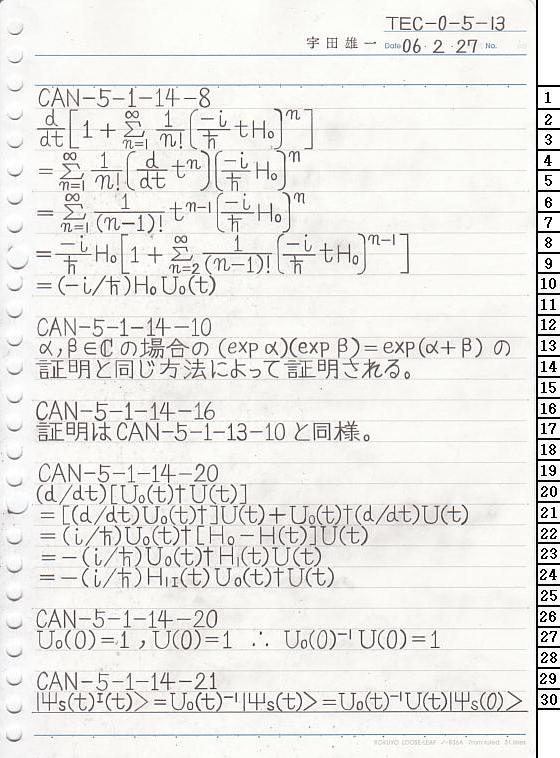 TEC-0-5-13
宇田雄一 Date 06・2・27 No.
CAN-5-1-14-8
d/dt [1 + Σ_{n=1}^{∞} 1/n! (-i/ħ tH₀)^n]
= Σ_{n=1}^{∞} 1/n! (d/dt t^n)(-i/ħ H₀)^n
= Σ_{n=1}^{∞} 1/(n-1)! t^{n-1} (-i/ħ H₀)^n
= -i/ħ H₀ [1 + Σ_{n=2}^{∞} 1/(n-1)! (-i/ħ tH₀)^{n-1}]
= (-i/ħ)H₀U₀(t)
CAN-5-1-14-10
α,β∈ℂの場合の (exp α)(exp β)=exp(α+β) の
証明と同じ方法によって証明される。
CAN-5-1-14-16
証明はCAN-5-1-13-10と同様。
CAN-5-1-14-20
(d/dt)[U₀(t)†U(t)]
=[(d/dt)U₀(t)†]U(t)+U₀(t)†(d/dt)U(t)
=(i/ħ)U₀(t)†[H₀-H(t)]U(t)
=-(i/ħ)U₀(t)†H₁(t)U(t)
=-(i/ħ)H₁I(t)U₀(t)†U(t)
CAN-5-1-14-20
U₀(0)=1, U(0)=1 ∴ U₀(0)⁻¹U(0)=1
CAN-5-1-14-21
|Ψs(t)ᴵ(t)>=U₀(t)⁻¹|Ψs(t)>=U₀(t)⁻¹U(t)|Ψs(0)>
KOKUYO LOOSE-LEAF ノ-836A 7mm ruled 31 lines
1
2
3
4
5
6
7
8
9
10
11
12
13
14
15
16
17
18
19
20
21
22
23
24
25
26
27
28
29
30